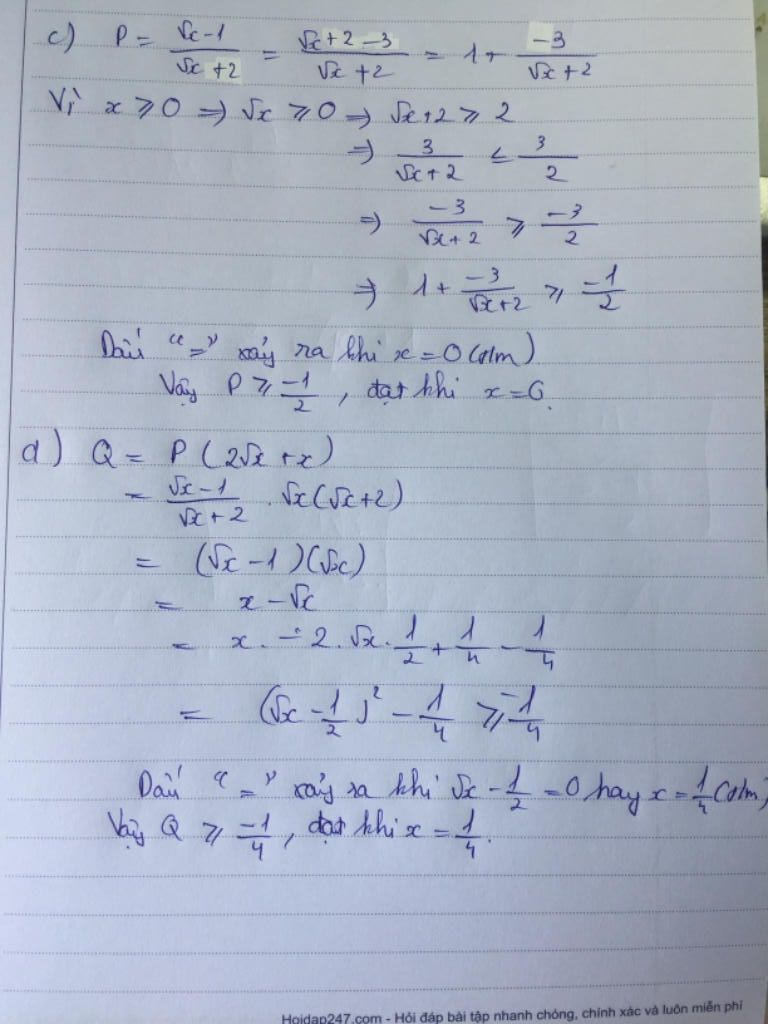 c) P = \frac{√x-1}{√x+2} = \frac{√x+2-3}{√x+2} = 1 + \frac{-3}{√x+2}
Vì x ⩾ 0 ⇒ √x ⩾ 0 ⇒ √x+2 ⩾ 2
⇒ \frac{3}{√x+2} ≤ \frac{3}{2}
⇒ \frac{-3}{√x+2} ⩾ \frac{-3}{2}
⇒ 1 + \frac{-3}{√x+2} ⩾ \frac{-1}{2}
Dấu "=" xảy ra khi x = 0 (tđm)
Vậy P ⩾ \frac{-1}{2}, đạt khi x = 0.
d) Q = P (2√x + x)
= \frac{√x-1}{√x+2} . √x(√x+2)
= (√x - 1)(√x)
= x - √x
= x - 2.√x.\frac{1}{2} + \frac{1}{4} - \frac{1}{4}
= (√x - \frac{1}{2})² - \frac{1}{4} ⩾ \frac{-1}{4}
Dấu "=" xảy ra khi √x - \frac{1}{2} = 0 hay x = \frac{1}{4} (tđm)
Vậy Q ⩾ \frac{-1}{4}, đạt khi x = \frac{1}{4}.
Hoidap247.com - Hỏi đáp bài tập nhanh chóng, chính xác và luôn miễn phí